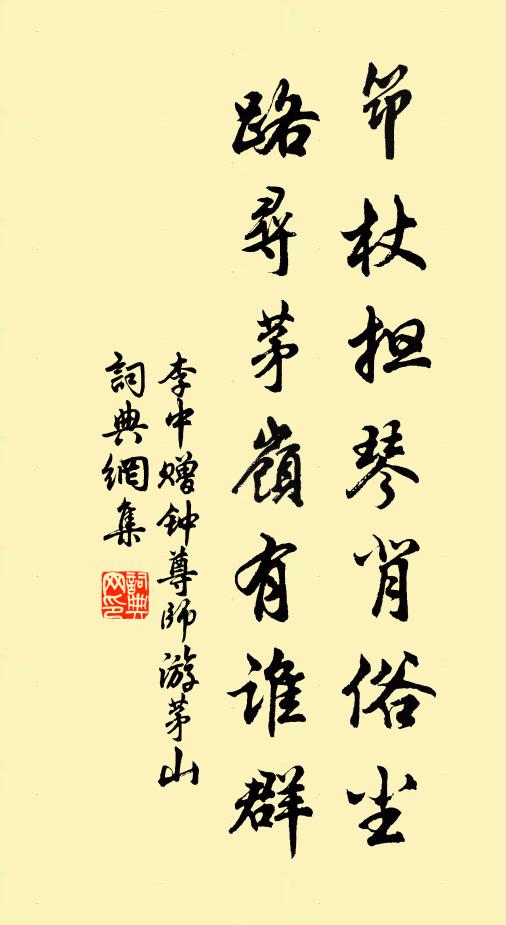 筇杖担琴背俗尘
路尋茅嶺有谁群
李中赠钟尊师游茅山
詞典網集
詞典网印